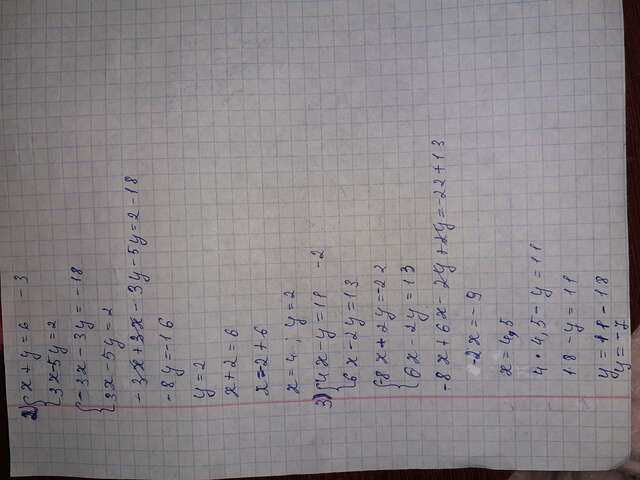 2) { x + y = 6 -3
{ 3x - 5y = 2
{ -3x - 3y = -18
{ 3x - 5y = 2
-3x + 3x - 3y - 5y = 2 - 18
-8y = -16
y = 2
x + 2 = 6
x = -2 + 6
x = 4; y = 2
3) { 4x - y = 11 -2
{ 6x - 2y = 13
{ -8x + 2y = -22
{ 6x - 2y = 13
-8x + 6x - 2y + 2y = -22 + 13
-2x = -9
x = 4,5
4 · 4,5 - y = 11
18 - y = 11
y = 11 - 18
y = -7